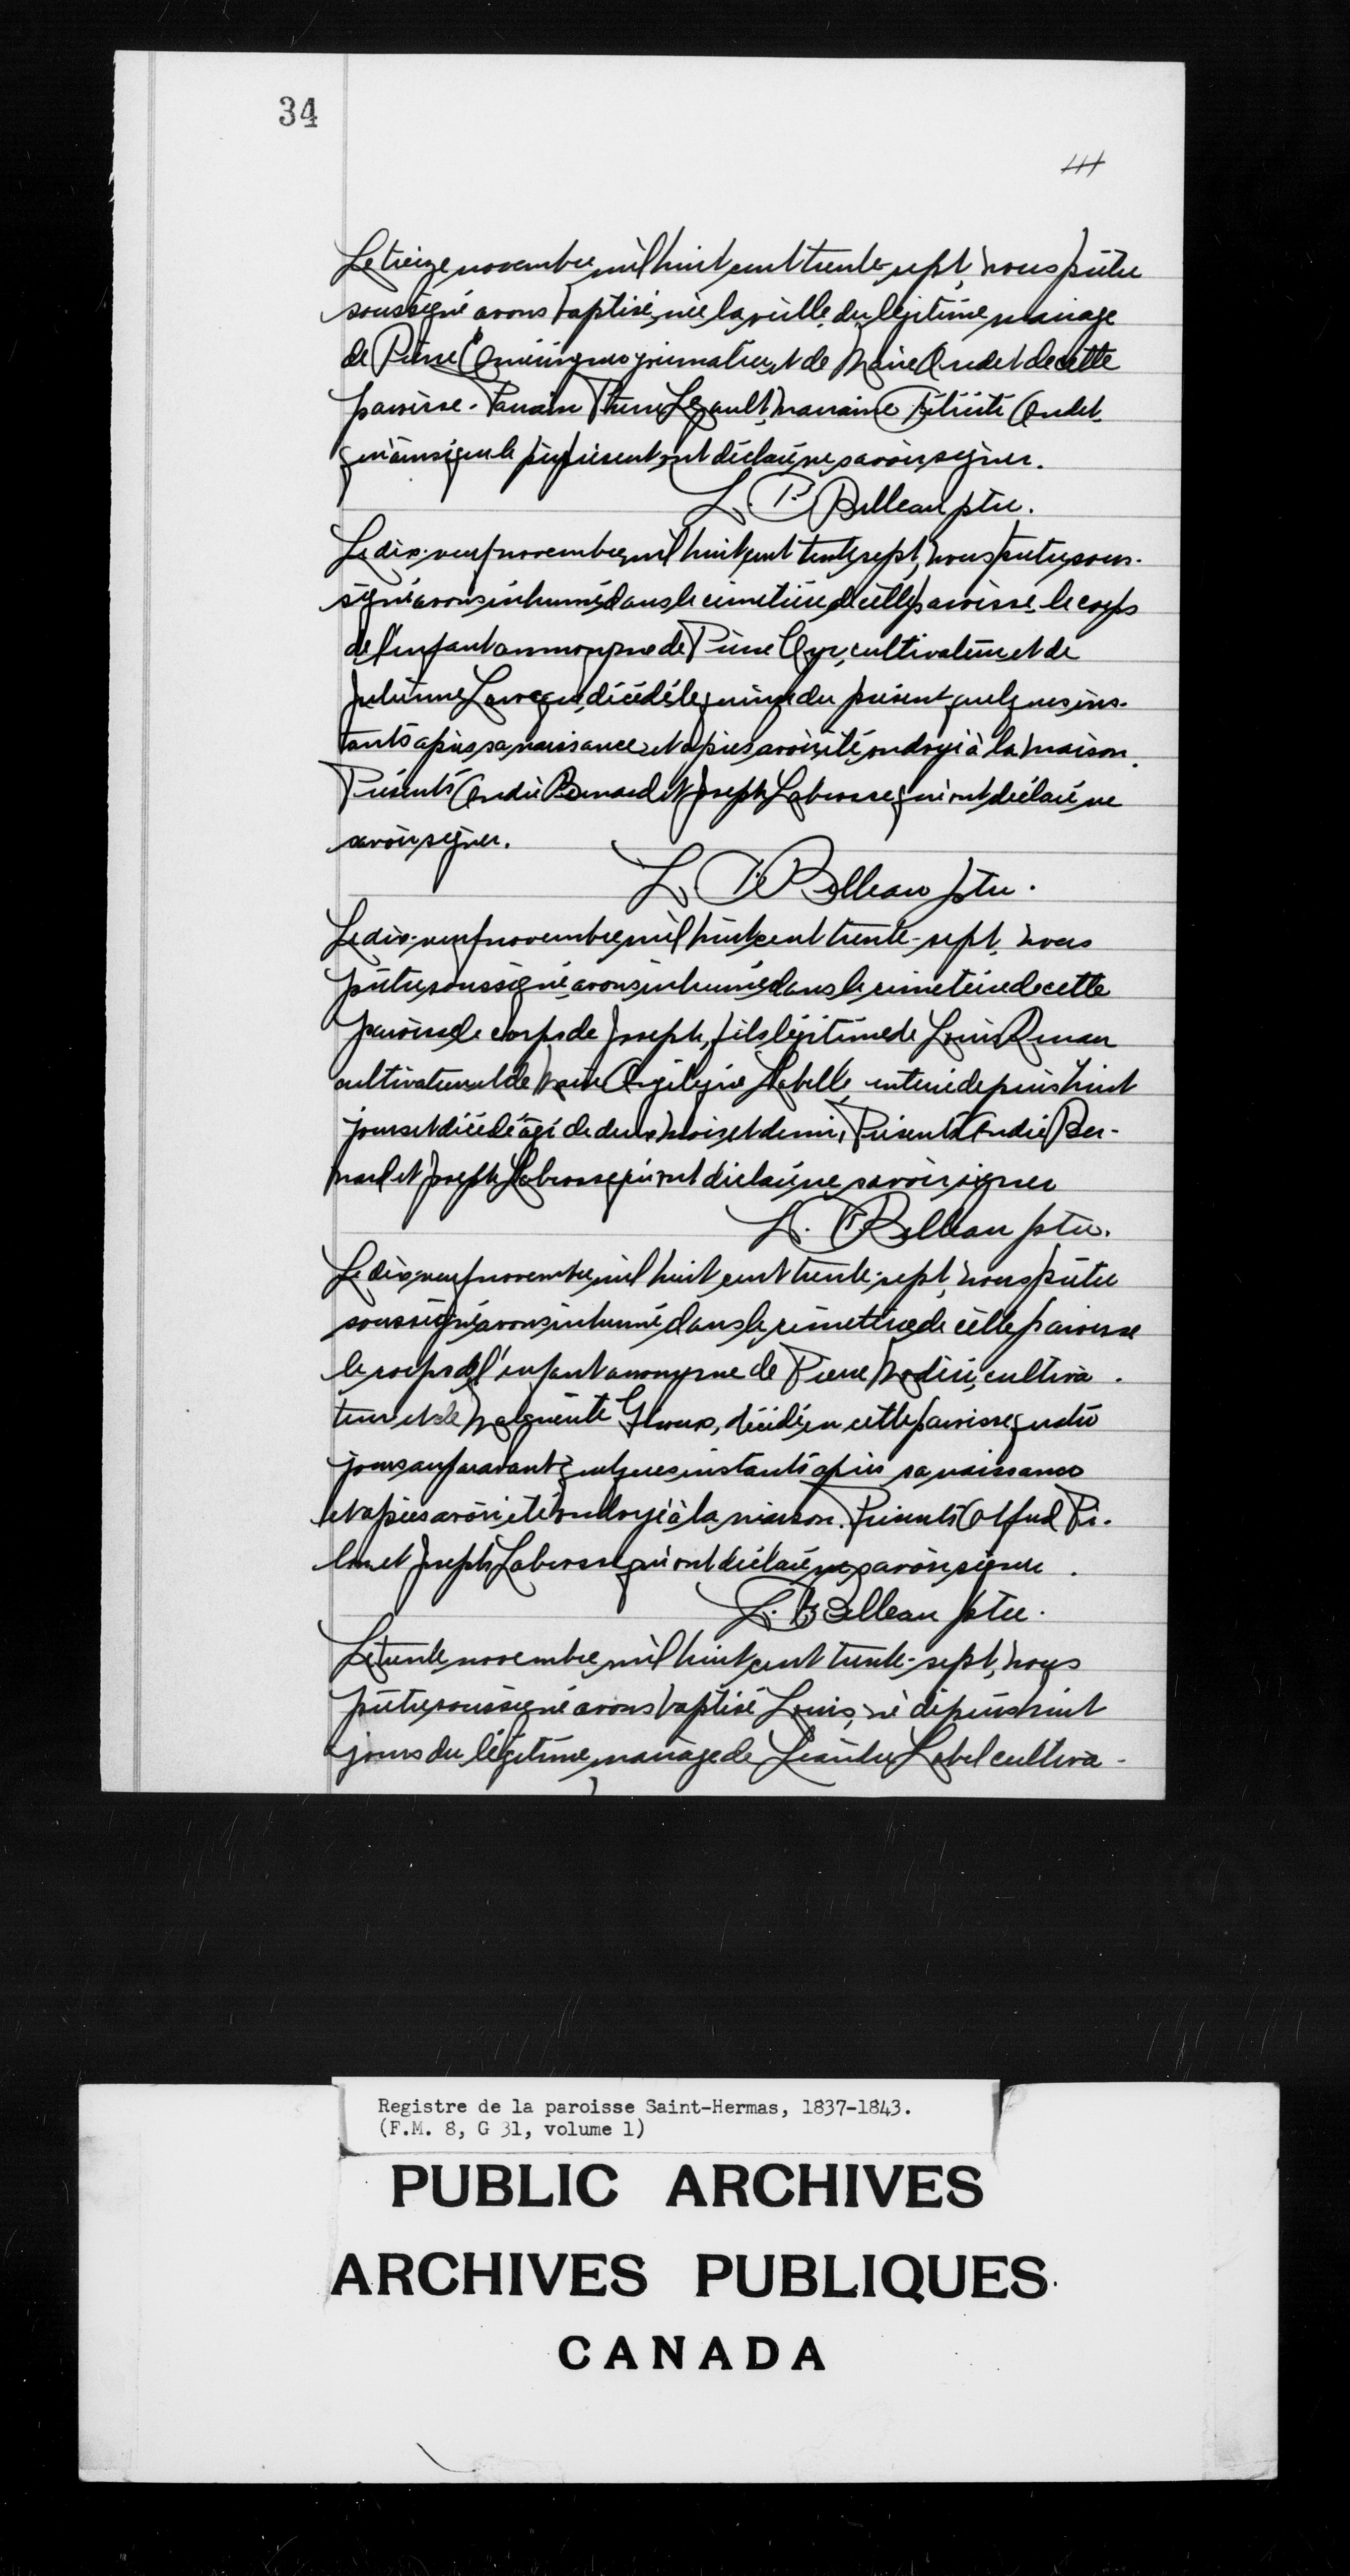 34
Le treize novembre mil huit cent trente-sept, nous prêtre
soussigné avons baptisé, née la veille du légitime mariage
de Pierre et de Marie Audet de cette
paroisse. Parrain Pierre Legault, marraine Félicité Audet
qui ainsi que le père présent ont déclaré ne savoir signer.
L. P. Belleau ptre.
Le dix-neuf novembre mil huit cent trente sept, nous prêtre sous-
signé avons inhumé dans le cimetière de cette paroisse le corps
de l'enfant anonyme de Pierre Cyr, cultivateur et de
Julienne décédé le quinze du présent quelques ins-
tants après sa naissance et après avoir été ondoyé à la maison.
Présents André Bernard et Joseph Labrosse qui ont déclaré ne
savoir signer.
L. P. Belleau ptre.
Le dix-neuf novembre mil huit cent trente-sept, nous
prêtre soussigné, avons inhumé dans le cimetière de cette
paroisse le corps de Joseph, fils légitime de Louis
cultivateur et de Marie Labelle, depuis huit
jours et décédé âgé de deux mois et demi, Présents André Ber-
nard et Joseph Labrosse qui ont déclaré ne savoir signer
L. P. Belleau ptre.
Le dix-neuf novembre mil huit cent trente-sept, nous prêtre
soussigné avons inhumé dans le cimetière de cette paroisse
le corps de l'enfant anonyme de Pierre cultiva-
teur et de Marguerite Giroux, décédé en cette paroisse quatre
jours auparavant quelques instants après sa naissance
et après avoir été ondoyé à la maison. Présents Alfred Pi-
lon et Joseph Labrosse qui ont déclaré ne savoir signer.
L. P. Belleau ptre.
Le trente novembre mil huit cent trente-sept, nous
prêtre soussigné avons baptisé Louis, né depuis huit
jours du légitime mariage de Léandre Label cultiva-
Registre de la paroisse Saint-Hermas, 1837-1843.
(F.M. 8, G 31, volume 1)
PUBLIC ARCHIVES
ARCHIVES PUBLIQUES
CANADA